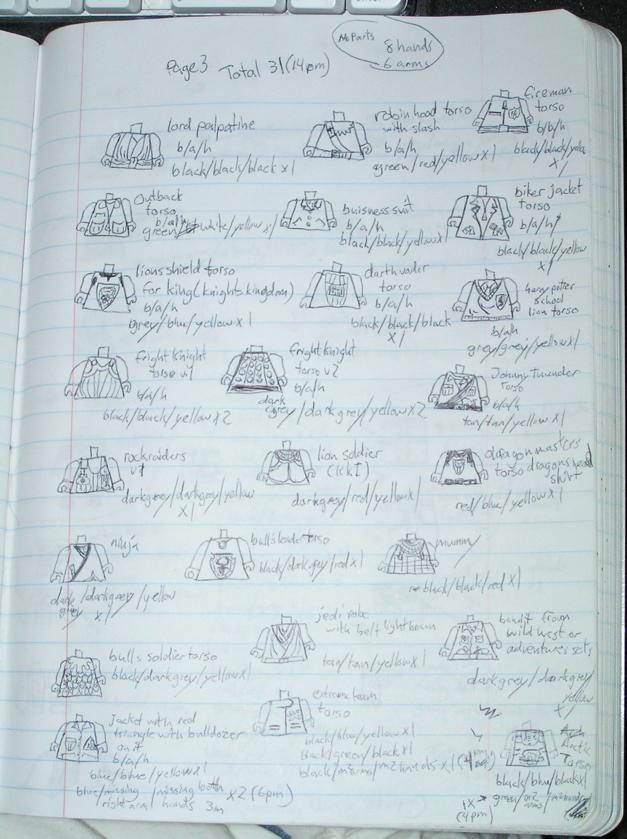 Page 3 Total 31 (14 pm)
No Parts
8 hands
6 arms
lord palpatine
b/a/h
black/black/black x1
robin hood torso
with slash
b/a/h
green/red/yellow x1
fireman
torso
b/b/h
black/black/yellow
x1
Outback
torso
b/a/h
green/white/yellow x1
buisness suit
b/a/h
black/black/yellow x1
biker jacket
torso
b/a/h
black/black/yellow
x1
lions shield torso
for king (knights kingdom)
b/a/h
grey/blue/yellow x1
darth vader
torso
b/a/h
black/black/black
x1
harry potter
school
lion torso
b/a/h
grey/grey/yellow x1
fright knight
torso v1
b/a/h
black/black/yellow x2
fright knight
torso v2
b/a/h
dark
grey/dark grey/yellow x2
Johnny Thunder
Torso
b/a/h
tan/tan/yellow x1
rockraiders
v1
dark grey/dark grey/yellow
x1
lion soldier
dark grey/red/yellow x1
dragon masters
torso dragons head
shirt
red/blue/yellow x1
ninja
dark grey/dark grey/yellow
x1
bulls leader torso
black/dark grey/red x1
mummy
black/black/red x1
bulls soldier torso
black/dark grey/yellow x1
jedi robe
with belt light brown
tan/tan/yellow x1
bandit from
wild west or
adventures sets
dark grey/dark grey/
yellow
x1
Jacket with red
triangle with bulldozer
on it
b/a/h
blue/blue/yellow x1
blue/missing right arm/missing both hands 3m x2 (6pm)
extreme team
torso
black/blue/yellow x1
black/grey/black x1
black/missing/m2 hands x1 (4pm)
Torso
black/blue/black x1
1x
(4pm)
green/m2 arms/m hands